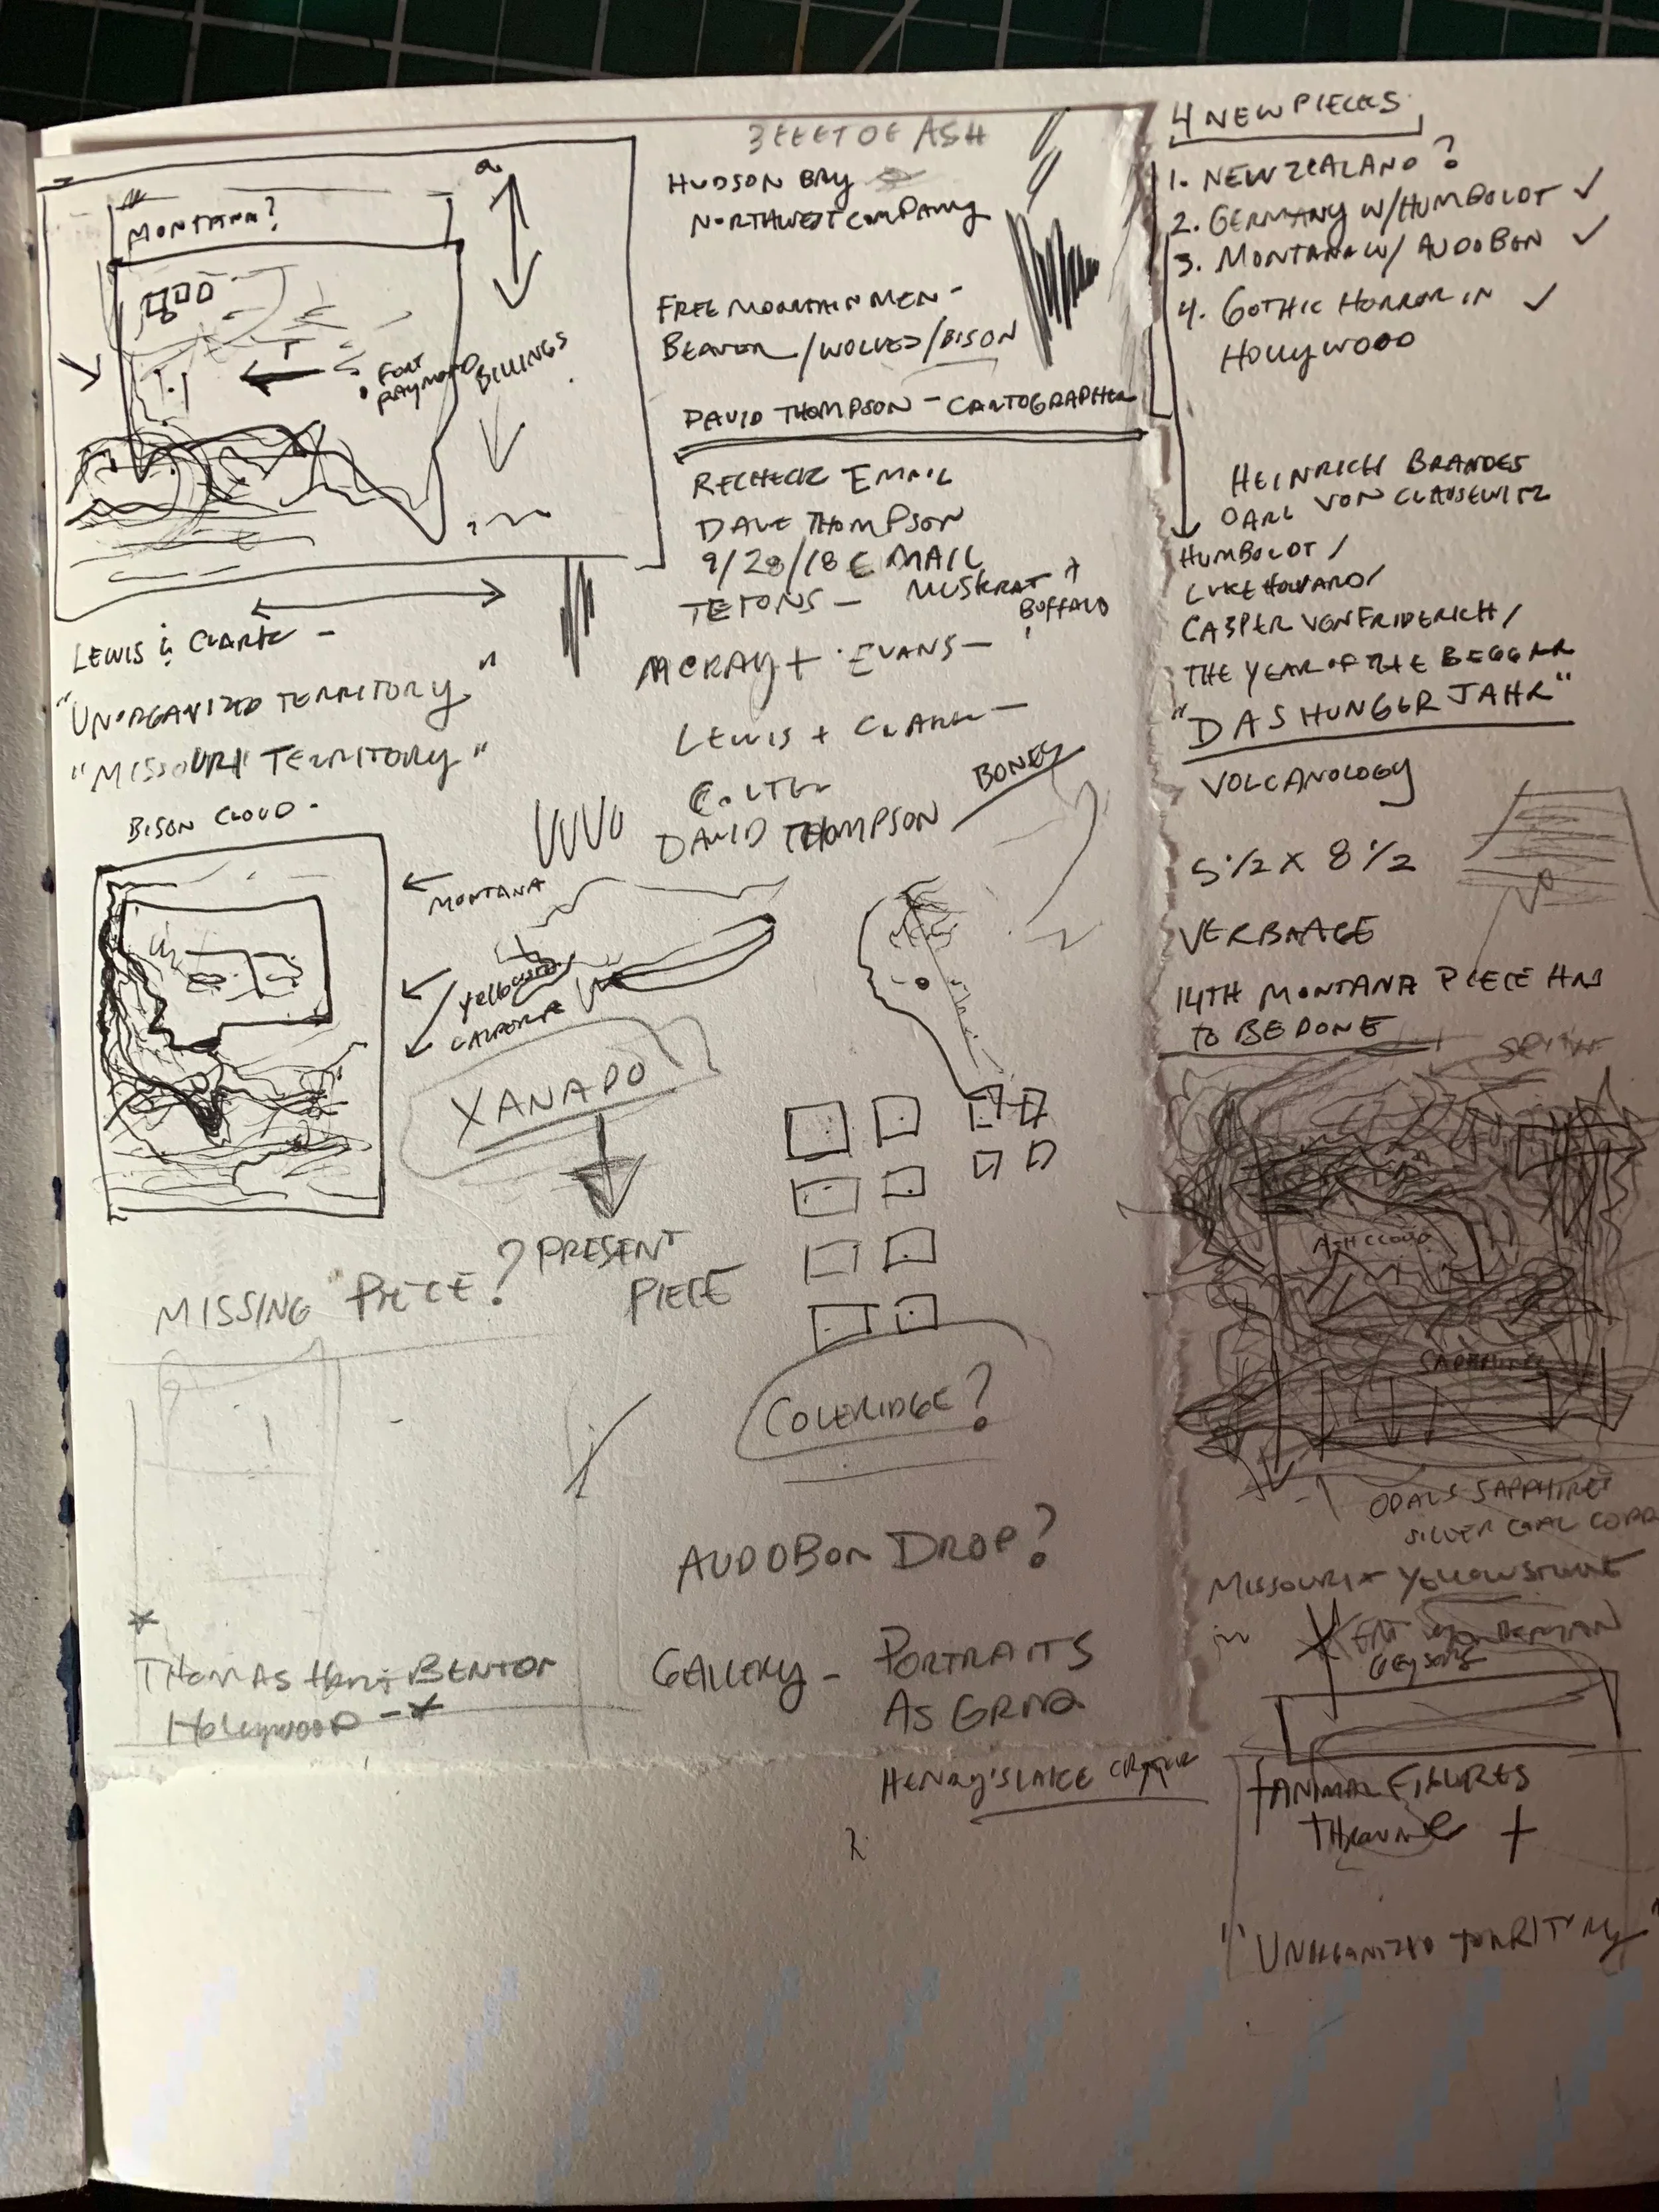 MONTANA?
FORT
RAYMOND
BILLINGS
LEWIS & CLARK -
"UNORGANIZED TERRITORY"
"MISSOURI TERRITORY"
BISON CLOUD -
MONTANA
XANADO
? PRESENT
PIECE
MISSING PIECE?
THOMAS HART BENTON
HOLLYWOOD -
3 FEET OF ASH
HUDSON BAY
NORTHWEST COMPANY
FREE MOUNTAIN MEN -
BEAVER / WOLVES / BISON
DAVID THOMPSON - CARTOGRAPHER
RECHECK EMAIL
DAVE THOMPSON
9/28/18 EMAIL
TETONS - MUSKRAT +
BUFFALO
MCKAY + EVANS -
LEWIS + CLARK -
COLTER
DAVID THOMPSON
BONES
COLERIDGE?
AUDOBON DROP?
GALLERY - PORTRAITS
AS GRID
HENRY'S LAKE CRATER
4 NEW PIECES
1. NEW ZEALAND?
2. GERMANY W/HUMBOLDT ✓
3. MONTANA W/ AUDOBON ✓
4. GOTHIC HORROR IN ✓
HOLLYWOOD
HEINRICH BRANDES
CARL VON CLAUSEWITZ
HUMBOLDT /
LUKE HOWARD /
CASPER VON FRIDERICH /
THE YEAR OF THE BEGGAR
"DAS HUNGER JAHR"
VOLCANOLOGY
5 1/2 X 8 1/2
VERBNAGE
14TH MONTANA PIECE HAS
TO BE DONE
ASH CLOUD
SAPPHIRES
OPALS SAPPHIRES
SILVER COAL COPP
MISSOURI + YELLOWSTONE
GEYSERS
ANIMAL FIGURES
"UNORGANIZED TERRITORY"